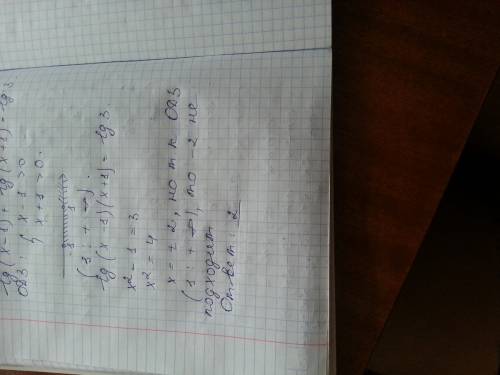 lg(x-1)+lg(x+1)=lg3.
ОДЗ: { x-1>0
x+1>0.
-1 1
(1;+∞).
lg(x-1)(x+1)=lg3
x²-1=3
x²=4
x=±2, но т.к ОДЗ
(1;+∞), то -2 не
подходит
Ответ: 2